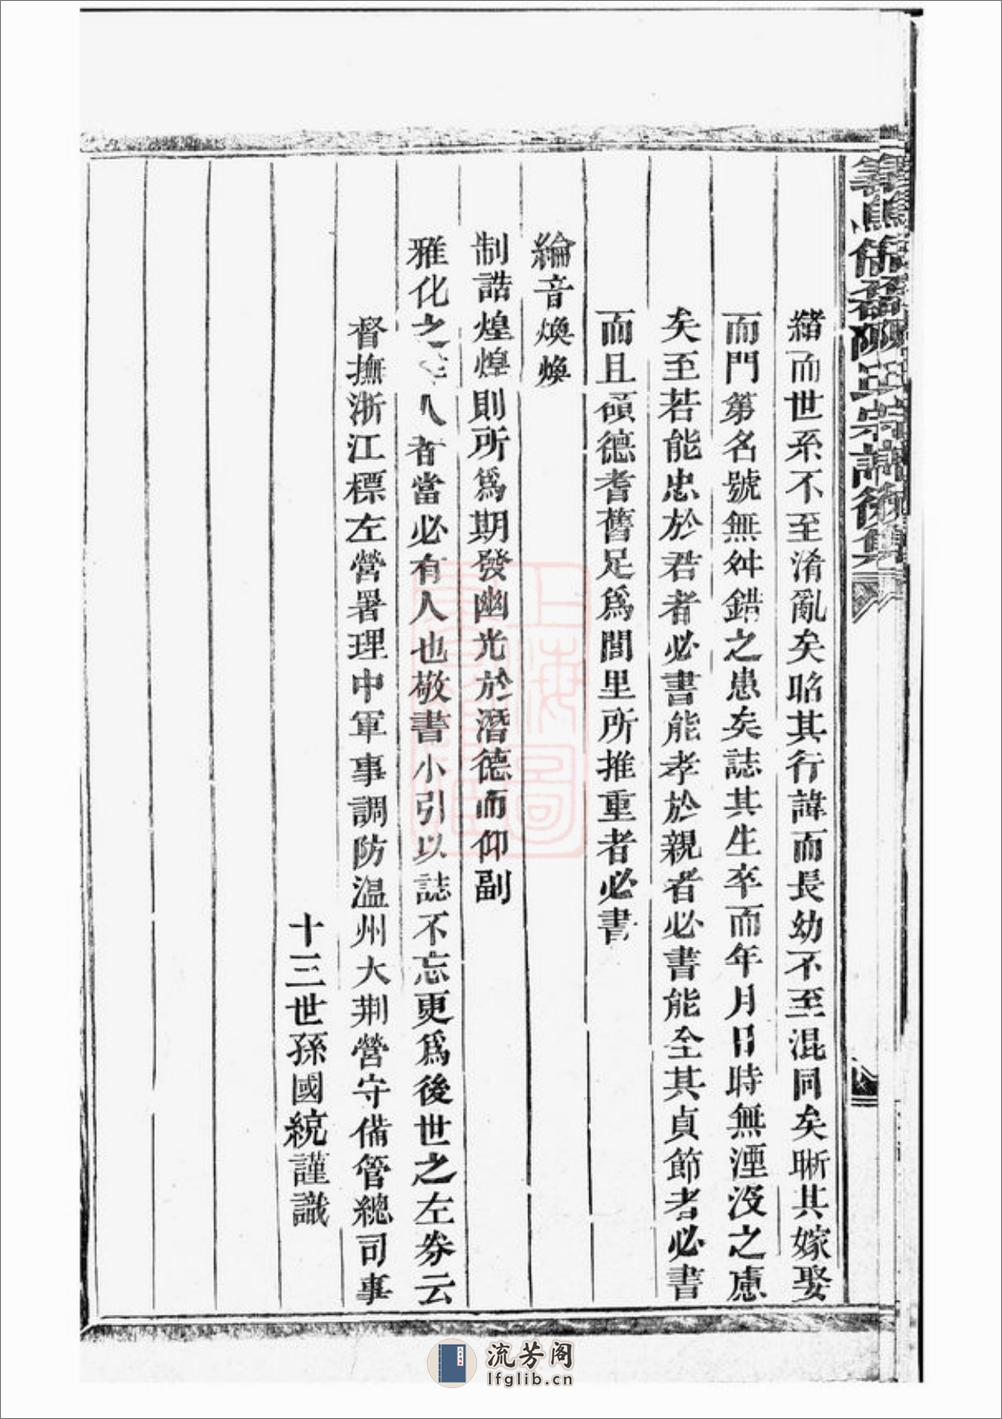 緒而世系不至淆亂矣昭其行諱而長幼不至混同矣晰其嫁娶
而門第名號無舛錯之患矣誌其生卒而年月日時無湮沒之慮
矣至若能忠於君者必書能孝於親者必書能全其貞節者必書
而且碩德耆舊足爲閭里所推重者必書
綸音煥煥
制誥煌煌則所爲期發幽光於潛德而仰副
雅化之 人者當必有人也敬書小引以誌不忘更爲後世之左券云
督撫浙江標左營署理中軍事調防溫州大荆營守備管總司事
十三世孫國統謹識
上海圖
流芳阁
lfglib.cn